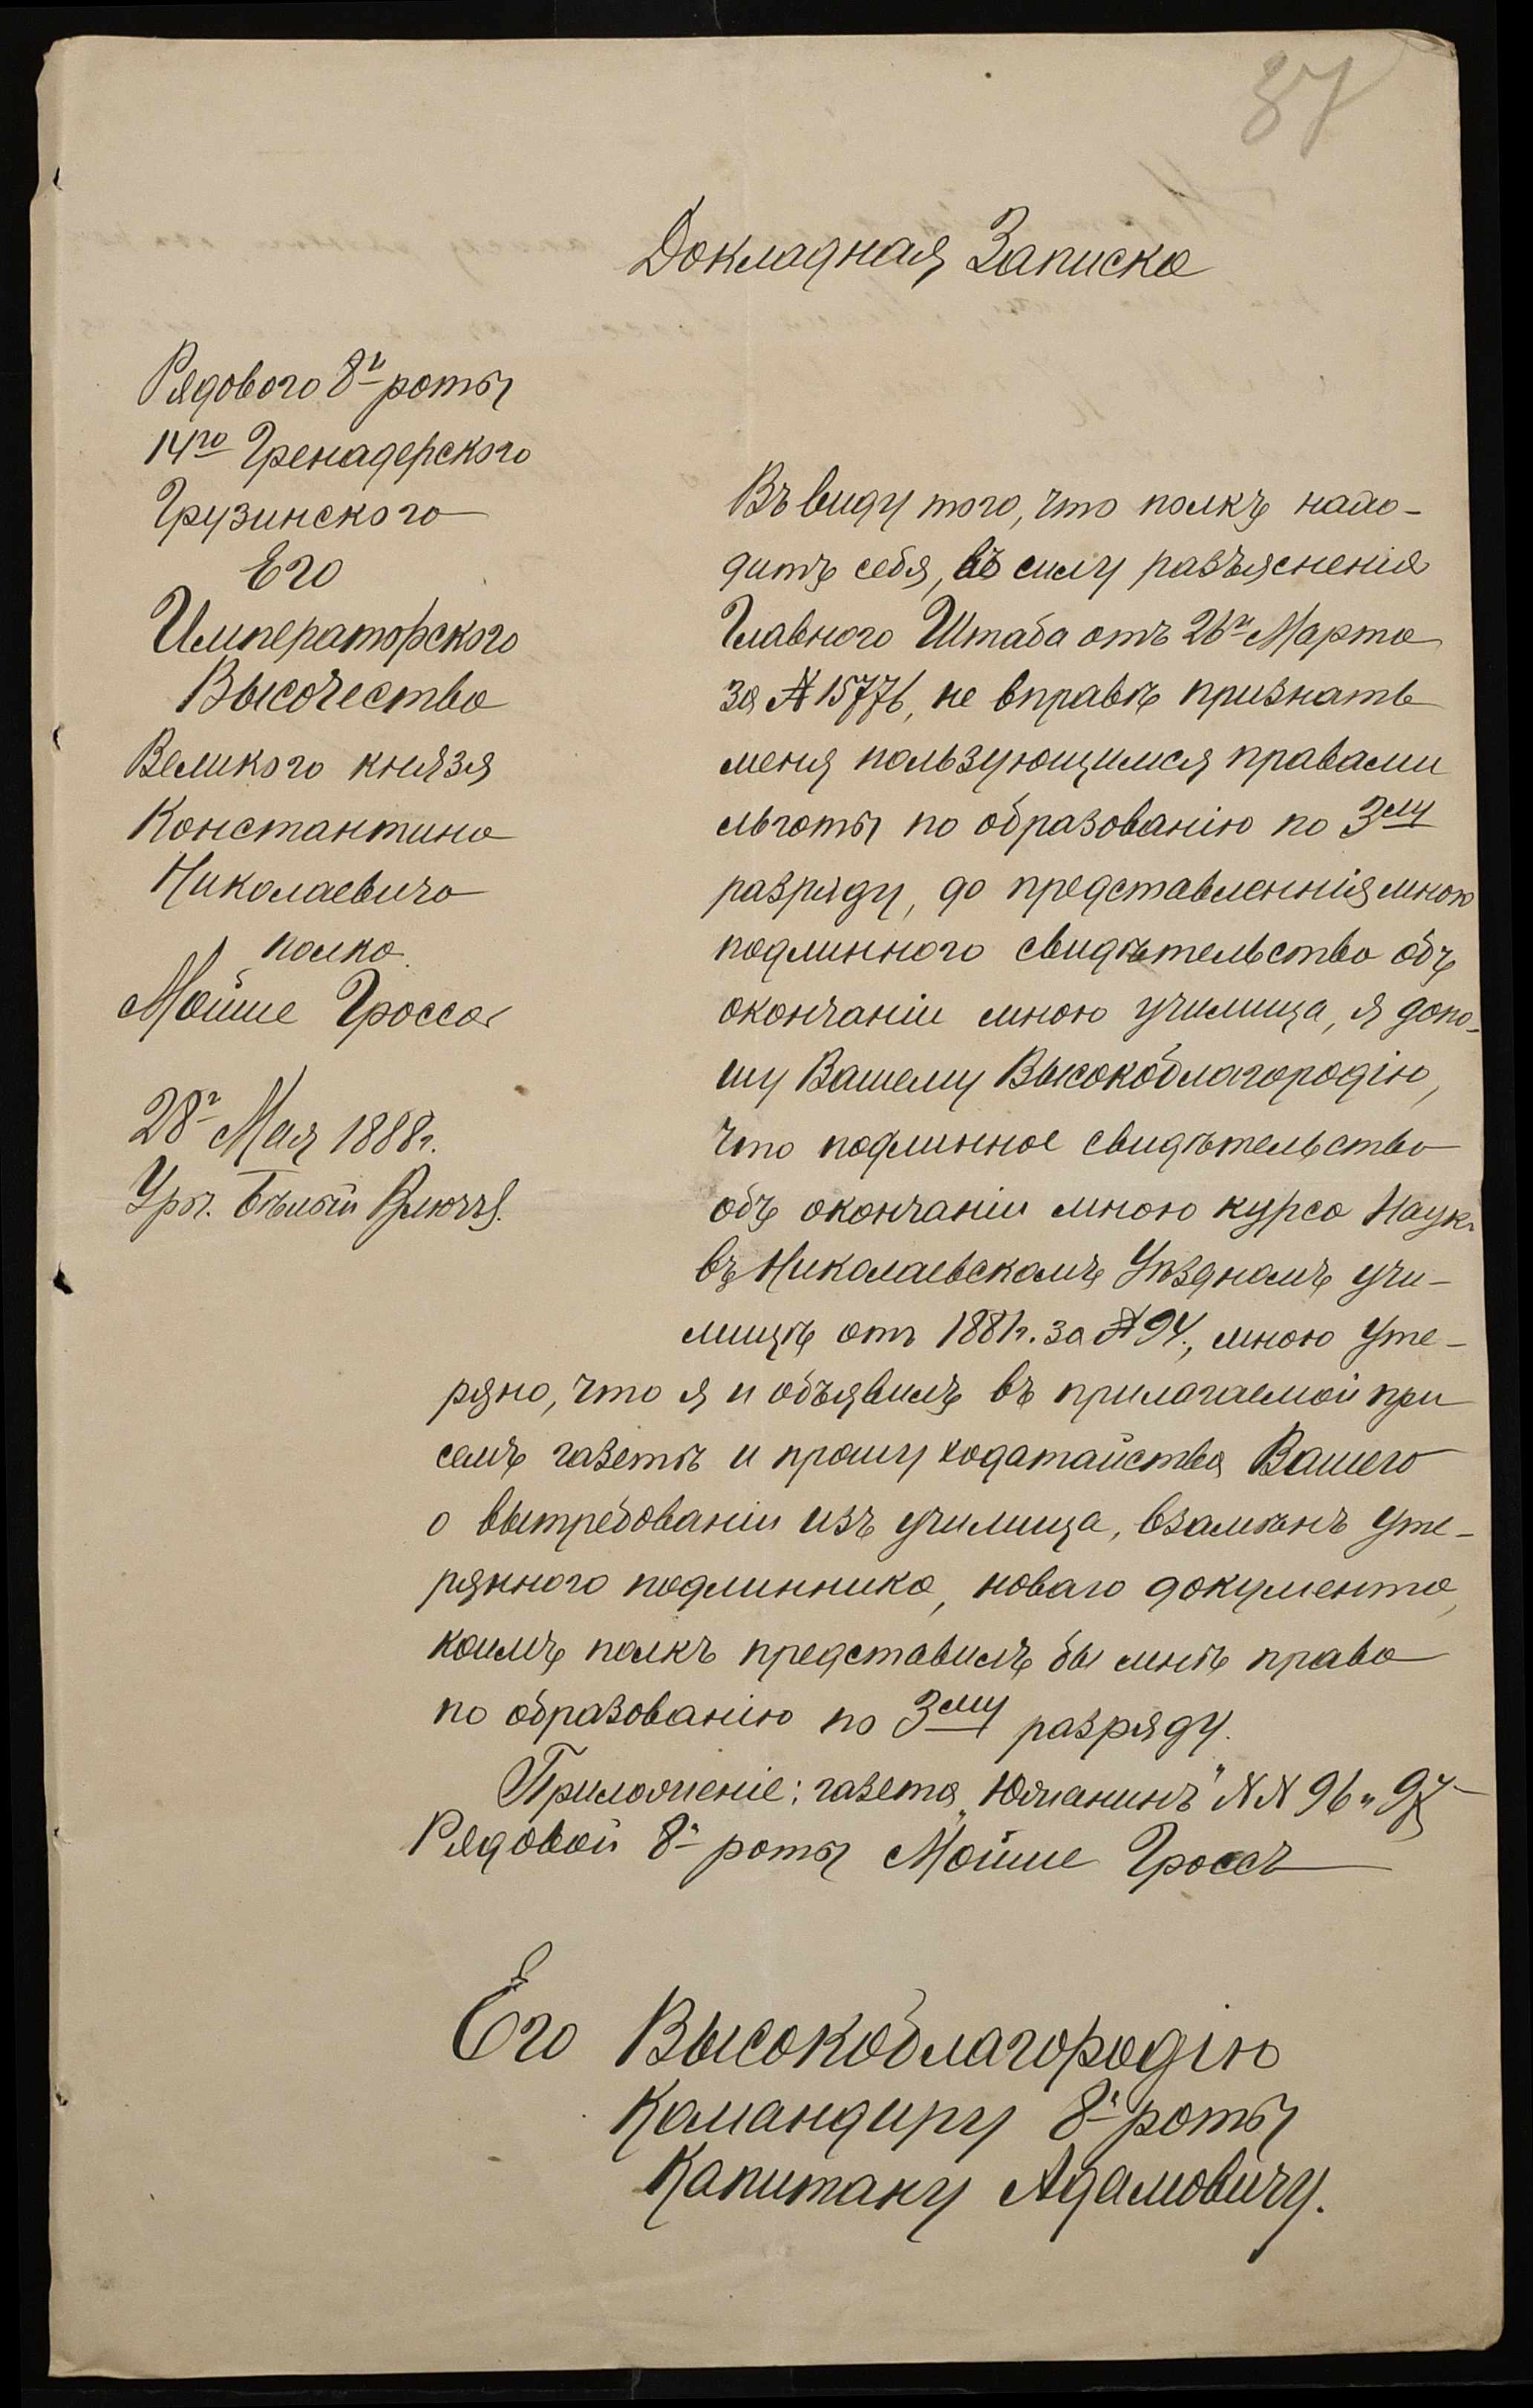 37
Докладная Записка
Рядового 8й роты
14го Гренадерского
Грузинского
Его
Императорского
Высочества
Великого князя
Константина
Николаевича
полка.
Мойше Гросса
28го Мая 1888 г.
Ур. Белый Ключъ.
Въ виду того, что полкъ нахо-
дитъ себя, въ силу разъяснения
Главного Штаба отъ 26го Марта
за № 15776, не вправѣ признать
меня пользующимся правами
льготы по образованію по 3му
разряду, до представленнія мною
подлинного свидѣтельства объ
окончаніи мною училища, я доно-
шу Вашему Высокоблагородію,
что подлинное свидѣтельство
объ окончаніи мною курса Наукъ
въ Николаевскомъ Уѣздномъ учи-
лищѣ отъ 1881 г. за № 94, мною уте-
ряно, что я и объявилъ въ прилагаемой при
семъ газетѣ и прошу ходатайства Вашего
о вытребованіи изъ училища, взамѣнъ уте-
рянного подлинника, новаго документа,
коимъ полкъ представилъ бы мнѣ право
по образованію по 3му разряду.
Приложеніе: газета „Южанинъ" №№ 96 и 97
Рядовой 8й роты Мойше Гроссъ
Его Высокоблагородію
Командиру 8й роты
Капитану Адамовичу.